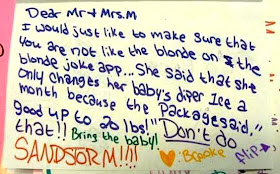 Dear Mr + Mrs.M
I would just like to make sure that
you are not like the blonde on the
blonde joke app... She said that she
only changes her baby's diper 1ce a
month because the Package said,"
good up to 20 lbs!!" Don't do
that!! Bring the baby!
SANDSORM!!!! :Brooke flip